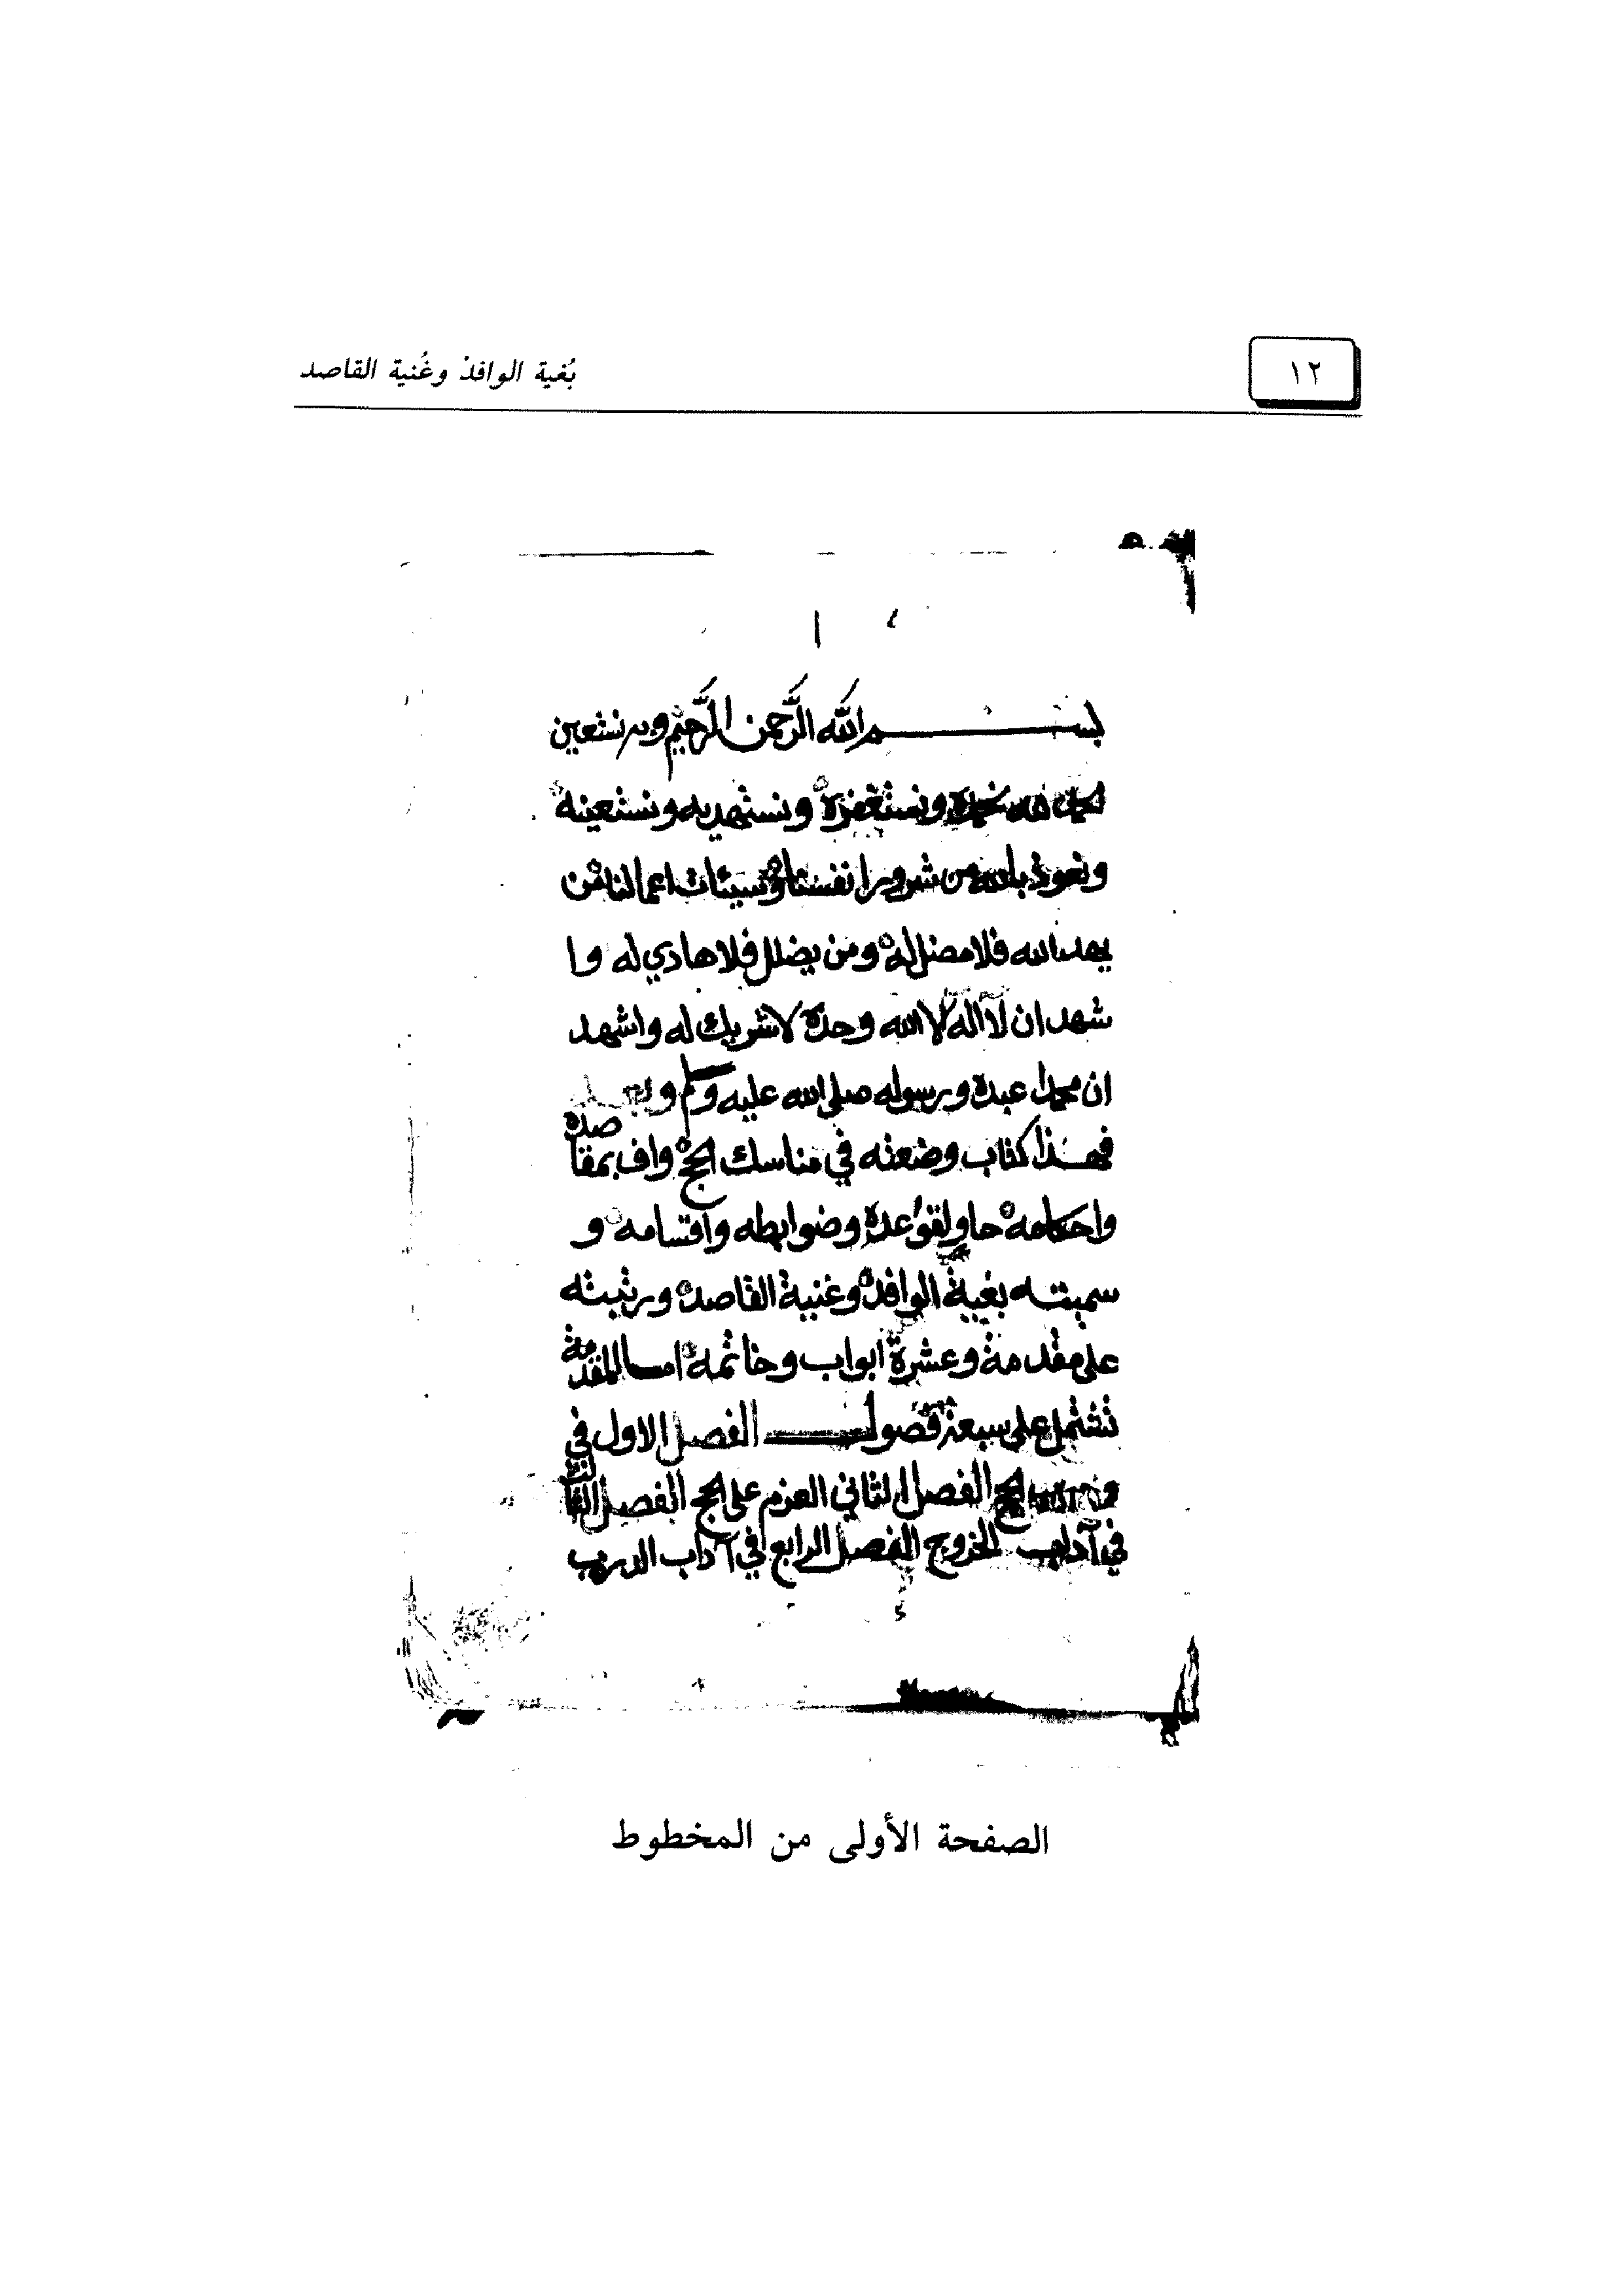 ١٢
بُغية الوافد وغُنية القاصد
بسم الله الرَّحمن الرَّحيم وبه نستعين
الحمد لله نحمده ونستغفره ونستهديه ونستعينه
ونعوذ بالله من شرور انفسنا وسيئات اعمالنا من
يهد الله فلا مضل له ومن يضلل فلا هادي له وا
شهد ان لا اله الا الله وحده لا شريك له واشهد
ان محمدا عبده ورسوله صلى الله عليه وسلم
فهذا كتاب وضعته في مناسك الحج واف بمقاصده
واحكامه حاو لقواعده وضوابطه واقسامه و
سميته بغية الوافد وغنية القاصد ورتبته
على مقدمة وعشرة ابواب وخاتمه اما المقدمة
تشتمل على سبعة فصول الفصل الاول في
الحج الفصل الثاني العزم على الحج الفصل الثالث
في آداب الخروج الفصل الرابع في آداب الدرب
الصفحة الأولى من المخطوط